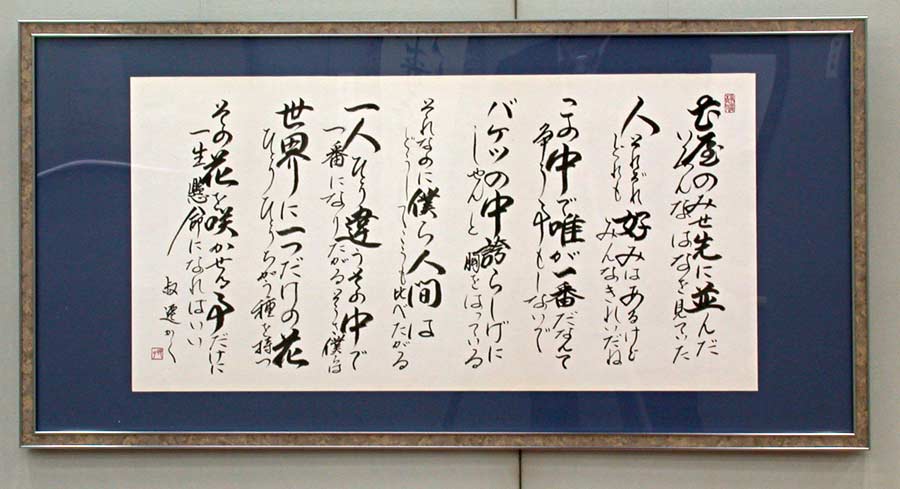 花屋のみせ先に並んだ
いろんなはなを見ていた
人それぞれ好みはあるけど
どれもみんなきれいだね
この中で唯が一番だなんて
争う事もしないで
バケツの中誇らしげに
しゃんと胸をはっている
それなのに僕ら人間は
どうしてこうも比べたがる
一人ひとり違うその中で
一番になりたがるそうさ僕らは
世界に一つだけの花
ひとりひとりちがう種を持つ
その花を咲かせる事だけに
一生懸命になればいい
かく